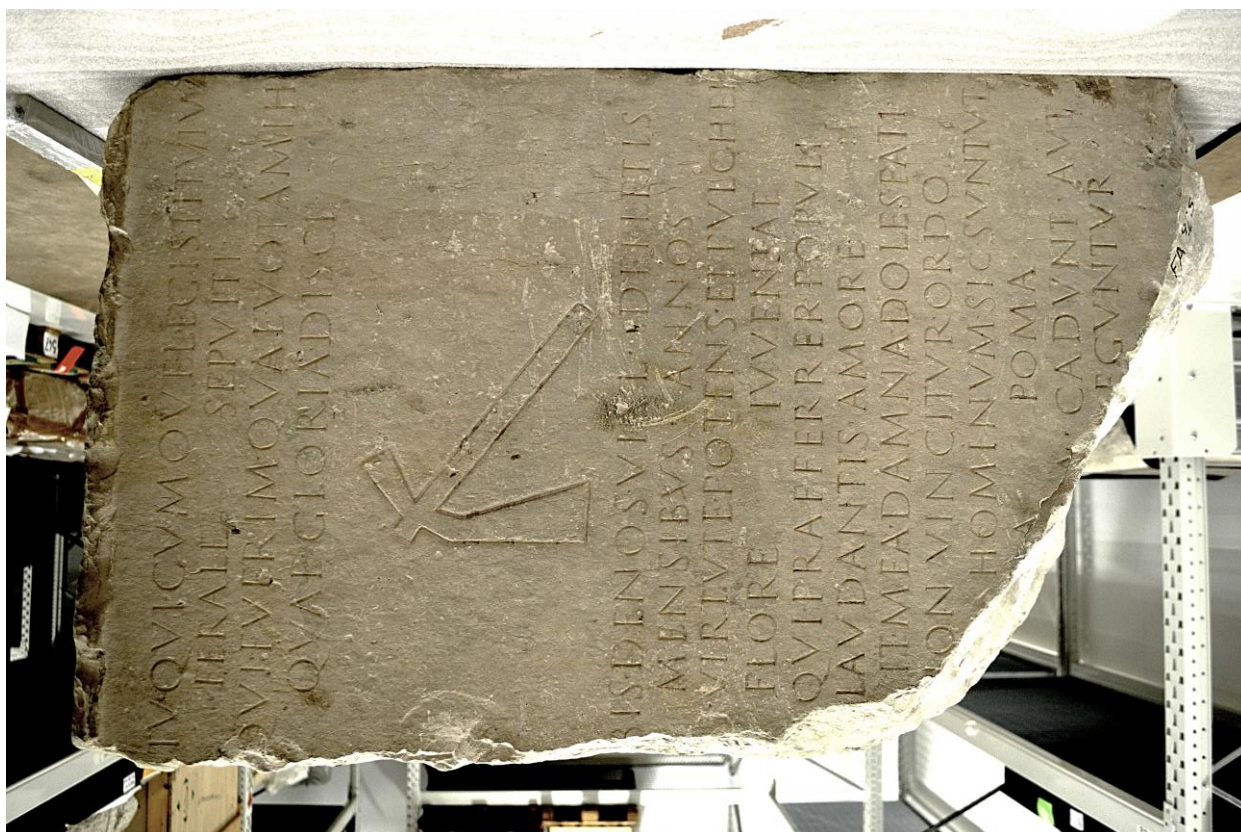 TVQVICVMQVELEGISTITVLVM
FERALE SEPVLTI
QVI·FVERIMQVAEVOTAMIHI
QVAEGLORIADISCE
BIS·DENOSVIXI·DEPLETIS
MENSIBVS ANNOS
VIRTVTEPOTENS·ETPVLCHER
FLORE IVVENTAE
QVIPRAEFERRERPOPVLI
LAVDANTIS AMORE
ITEMEA·DAMNADOLESFATI
NON VINCITVR ORDO
HOMINVMSICSVNTVT
POMA
A·CADVNT AVT
EGVNTVR